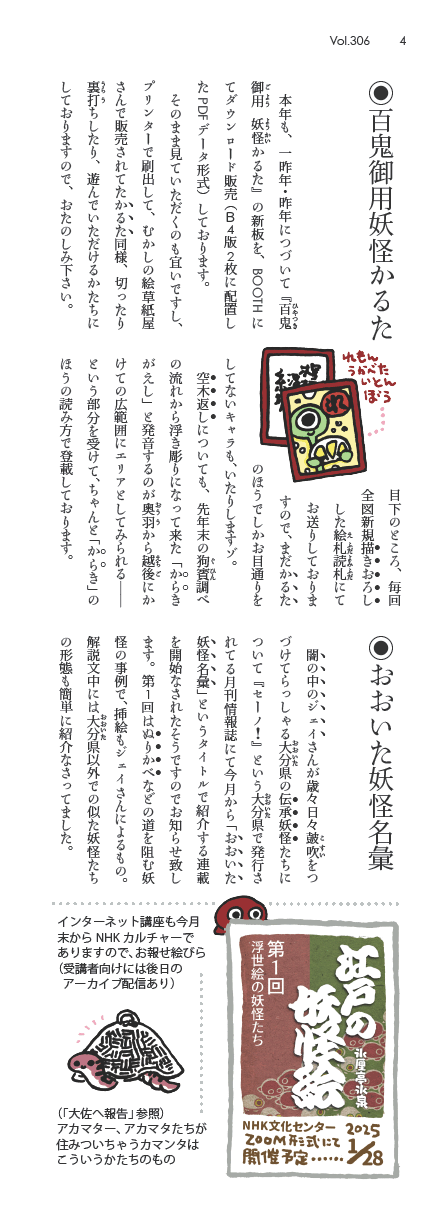 Vol.306 4
◉百鬼御用妖怪かるた
本年も、一昨年・昨年につづいて『百鬼
御用 妖怪かるた』の新板を、BOOTHに
てダウンロード販売（B4版2枚に配置し
たPDFデータ形式）しております。
そのまま見ていただくのも宜いですし、
プリンターで刷出して、むかしの絵草紙屋
さんで販売されてたかるた同様、切ったり
裏打ちしたり、遊んでいただけるかたちに
しておりますので、おたのしみ下さい。
目下のところ、毎回
全図新規描きおろし
した絵札読札にて
お送りしておりま
すので、まだかるた
のほうでしかお目通りを
してないキャラも、いたりしますゾ。
空木返しについても、先年末の狗賓調べ
の流れから浮き彫りになって来た「からき
がえし」と発音するのが奥羽から越後にか
けての広範囲にエリアとしてみられる――
という部分を受けて、ちゃんと「からき」の
ほうの読み方で登載しております。
れもん
うかべた
いとん
ぼう
れ
◉おおいた妖怪名彙
闇の中のジェイさんが歳々日々皷吹をつ
づけてらっしゃる大分県の伝承妖怪たちに
ついて『セーノ！』という大分県で発行さ
れてる月刊情報誌にて今月から「おおいた
妖怪名彙」というタイトルで紹介する連載
を開始なされたそうですのでお知らせ致し
ます。第1回はぬりかべなどの道を阻む妖
怪の事例で、挿絵もジェイさんによるもの。
解説文中には大分県以外での似た妖怪たち
の形態も簡単に紹介なさってました。
インターネット講座も今月
末からNHKカルチャーで
ありますので、お報せ絵びら
（受講者向けには後日の
アーカイブ配信あり）
（「大佐へ報告」参照）
アカマター、アカマタたちが
住みついちゃうカマンタは
こういうかたちのもの
江戸の
妖怪絵
氷厘亭氷泉
第1回
浮世絵の妖怪たち
NHK文化センター
ZOOM形式にて
開催予定……
2025
1/28